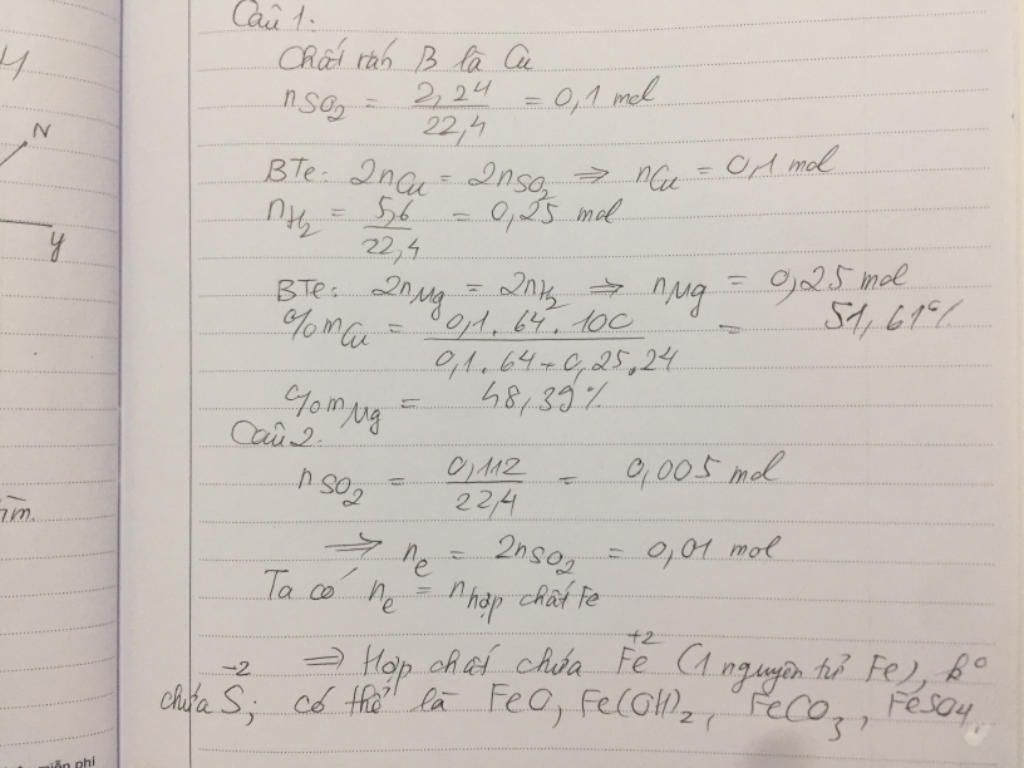 Câu 1:
Chất rắn B là Cu
nSO2 = 2,24/22,4 = 0,1 mol
BTe: 2nCu = 2nSO2 => nCu = 0,1 mol
nH2 = 5,6/22,4 = 0,25 mol
BTe: 2nMg = 2nH2 => nMg = 0,25 mol
%mCu = 0,1.64.100/0,1.64+0,25.24 = 51,61%
%mMg = 48,39%
Câu 2.
nSO2 = 0,112/22,4 = 0,005 mol
=> ne = 2nSO2 = 0,01 mol
Ta có ne = nhợp chất Fe
=> Hợp chất chứa Fe+2 (1 nguyên tử Fe), ko
chứa S-2; có thể là FeO, Fe(OH)2, FeCO3, FeSO4.
N
y
ìm.
miễn phí